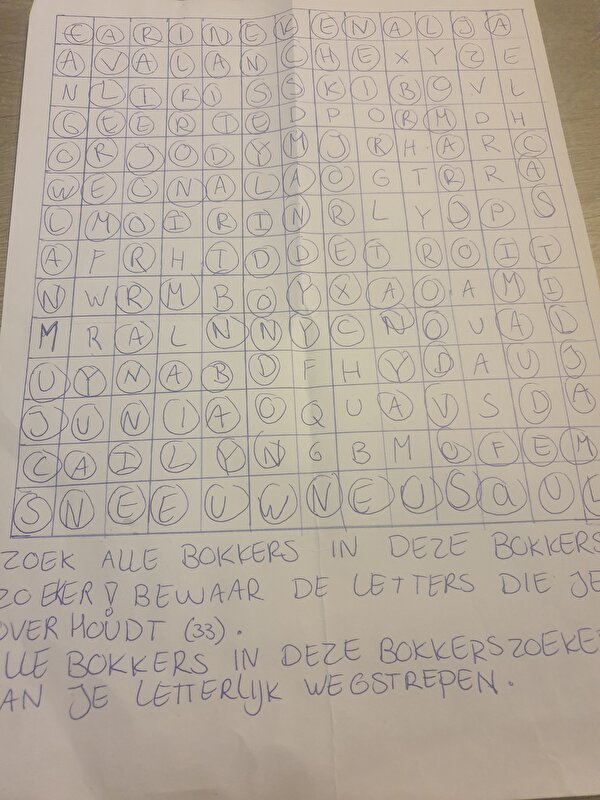 E A R I N E K E N A L J A
A V A L A N C H E X Y Z E
N L I R I S S K I B O V L
G E E R T E D P O R M D H
O R J O D Y M J R H A R C
W E O N A L A O G T R R A
L M O I R I N R L Y J P S
A F R H I D D E T R O I T
N W R M B O Y X A O A M I
M R A L N N Y C N O U A D
U Y N A B D F H Y D A U J
J U N I A O Q U A V S D A
C A I L Y N G B M U F E M
S N E E U W N E U S A U L
ZOEK ALLE BOKKERS IN DEZE BOKKERS
ZOEKER! BEWAAR DE LETTERS DIE JE
OVER HOUDT (33).
LLE BOKKERS IN DEZE BOKKERSZOEKE
AN JE LETTERLIJK WEGSTREPEN.